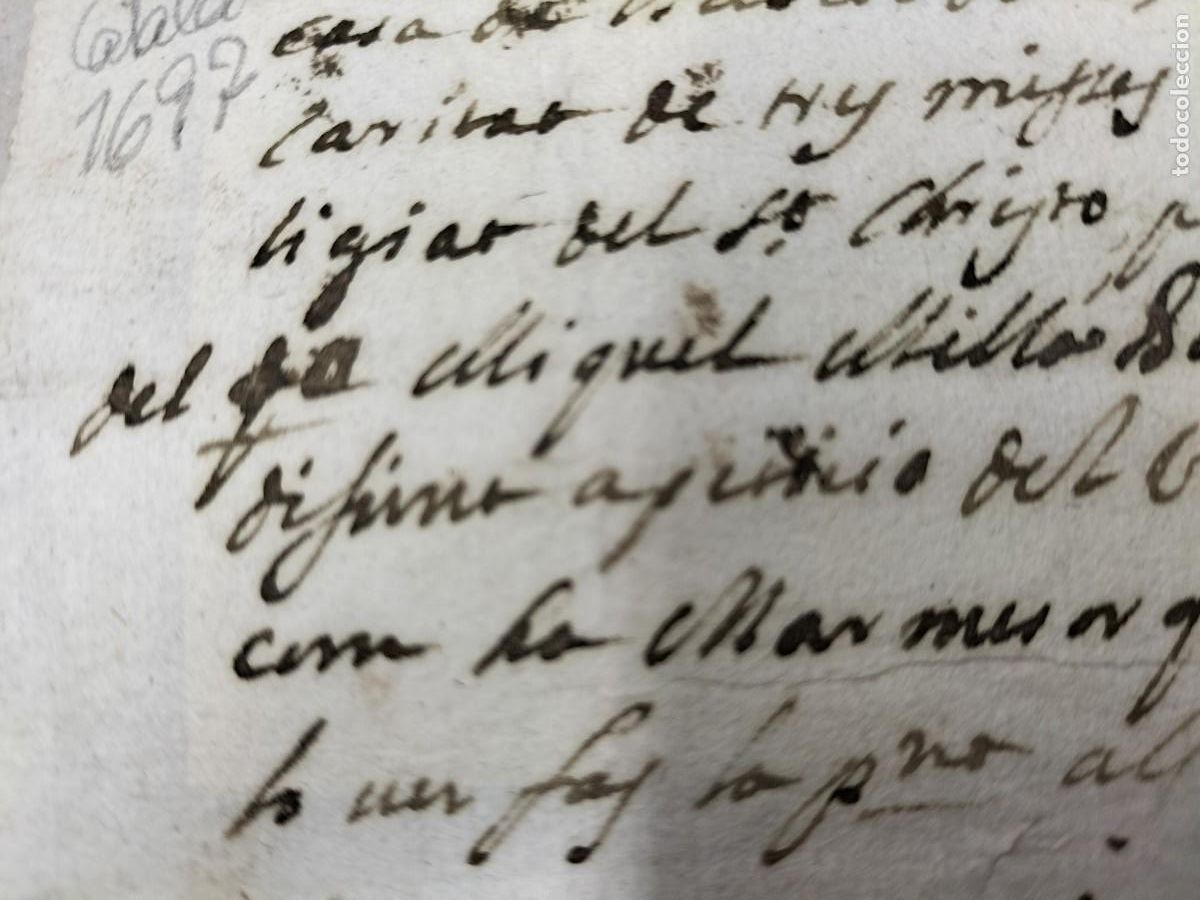 Catala
1697
casa de
Caritat de trey misses
ligiat del St. Christo, p
del Miquel Millas
difunt a judici del
com ho Marmesor q
lo ver fas la pnt al
todocoleccion